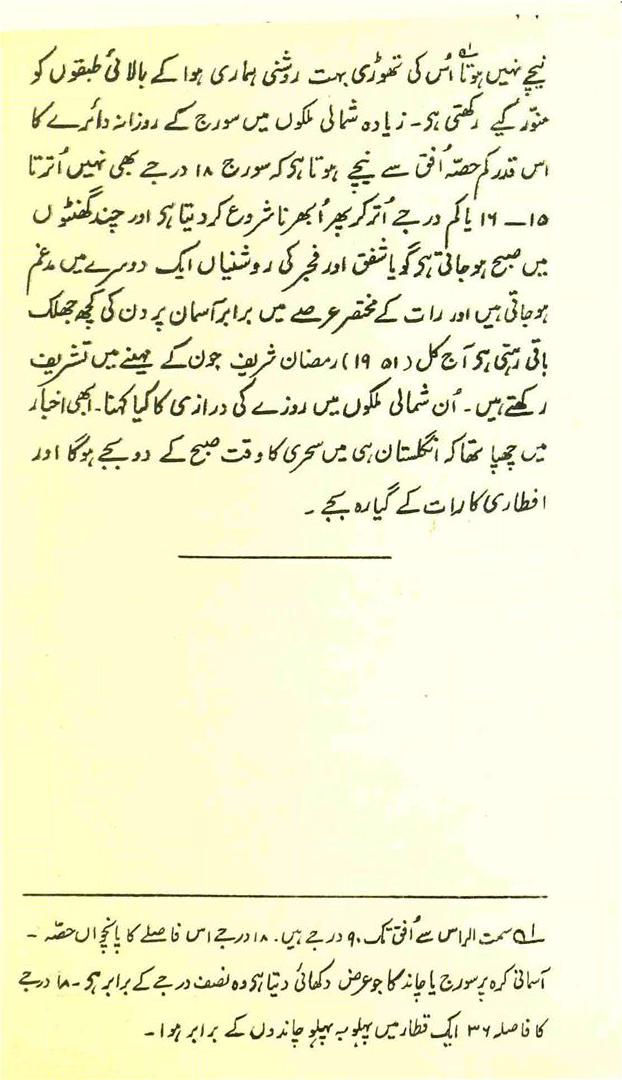 نیچے نہیں ہوتا؂۱ اُس کی تھوڑی بہت روشنی ہماری ہوا کے بالائی طبقوں کو
منوّر کیے رکھتی ہو۔ زیادہ شمالی ملکوں میں سورج کے روزانہ دائرے کا
اس قدر کم حصّہ اُفق سے نیچے ہوتا ہو کہ سورج ۱۸ درجے بھی نہیں اُترتا
۱۵ ــ ۱۶ یا کم درجے اُتر کر پھر اُبھرنا شروع کر دیتا ہو اور چند گھنٹوں
میں صبح ہو جاتی ہو گویا شفق اور فجر کی روشنیاں ایک دوسرے میں مدغم
ہو جاتی ہیں اور رات کے مختصر عرصے میں برابر آسمان پر دن کی کچھ جھلک
باقی رہتی ہو آج کل (۱۹۵۱) رمضان شریف جون کے مہینے میں تشریف
رکھتے ہیں۔ اُن شمالی ملکوں میں روزے کی درازی کا کیا کہنا۔ ابھی اخبار
میں چھپا تھا کہ انگلستان ہی میں سحری کا وقت صبح کے دو بجے ہوگا اور
افطاری کا رات کے گیارہ بجے۔
؂۱ سمت الراس سے اُفق تک ۹۰ درجے ہیں۔ ۱۸ درجے اس فاصلے کا پانچواں حصّہ۔
آسمانی کرہ پر سورج یا چاند کا جو عرض دکھائی دیتا ہو وہ نصف درجے کے برابر ہو۔ ۱۸ درجے
کا فاصلہ ۳۶ ایک قطار میں پہلو بہ پہلو چاندوں کے برابر ہوا۔